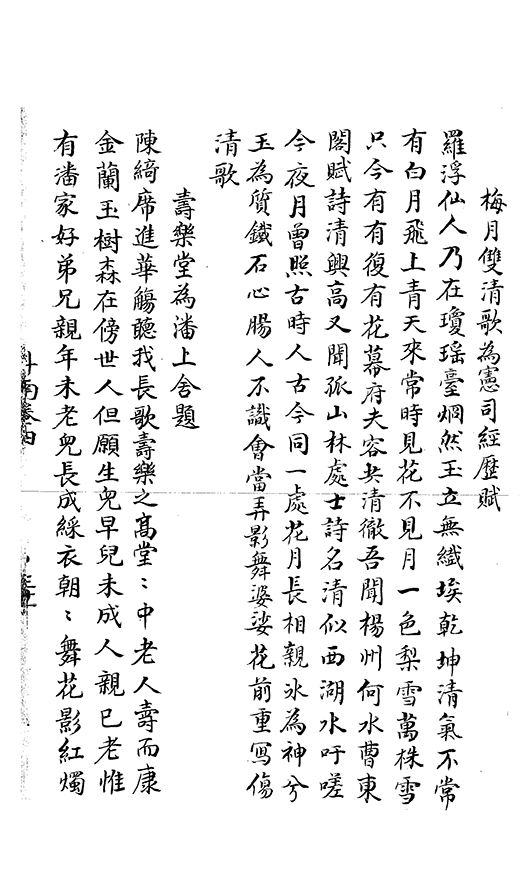 梅月雙清歌為憲司經歷賦
羅浮仙人乃在瓊瑤臺烱然玉立無纎埃乾坤清氣不常
有白月飛上青天來常時見花不見月一色梨雪萬株雪
只今有有復有花幕府夫容共清徹吾聞楊州何水曹東
閣賦詩清興高又聞孤山林處士詩名清似西湖水吁嗟
今夜月曾照古時人古今同一處花月長相親氷為神兮
玉為質鐵石心膓人不識會當弄影舞婆娑花前重寫傷
清歌
壽樂堂為潘上舍題
陳綺席進華觴聽我長歌壽樂之髙堂：中老人壽而康
金蘭玉樹森在傍世人但願生兒早兒未成人親已老惟
有潘家好弟兄親年未老兒長成綵衣朝：舞花影紅燭